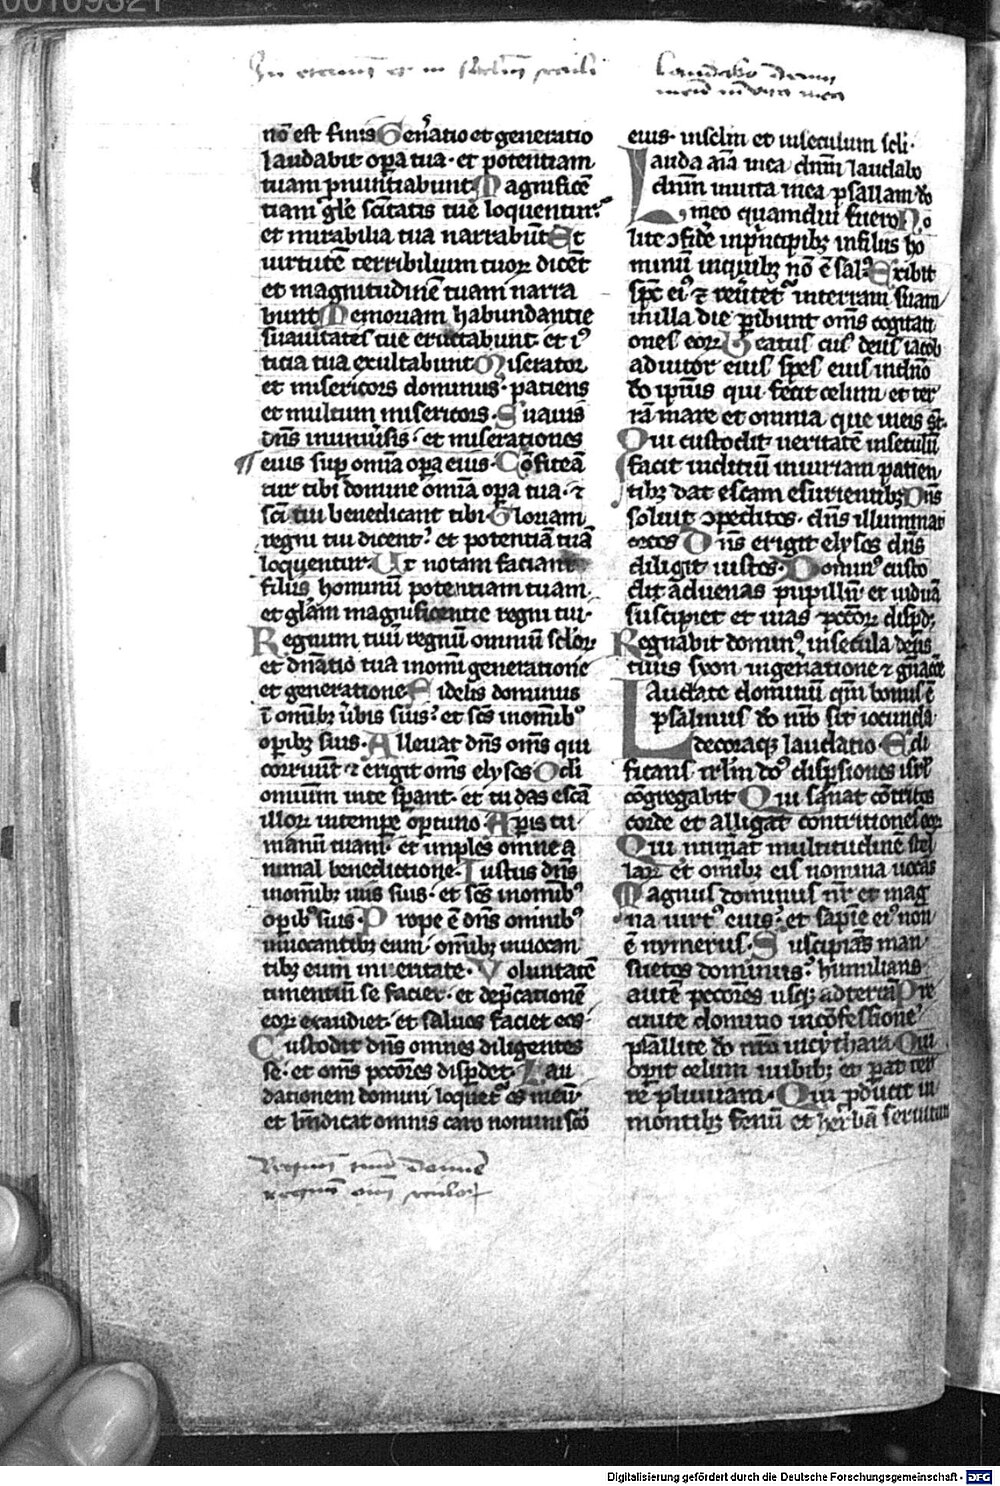 00109321
In eternu(m) et in seculu(m) seculi
Laudabo deum
meu(m) in vita mea
nō est finis Gen̄atio et generatio
laudabit op̄a tua· et potentiam
tuam p̄nuntiabunt Magnificē
tiam gl̄e sc̄itatis tue loquentur⁊
et mirabilia tua narrabūt Et
uirtutē terribilium tuoꝝ dicēt
et magnitudinē tuam narra
bunt Memoriam habundantie
suauitatis tue eructabunt et iꝰ
ticia tua exultabunt Miserator
et misericors dominus· patiens
et multum misericors· Suauis
dn̄s in uniūsis· et miserationes
eius sup̄ om̄ia op̄a eius· Cōfiteā
tur tibi domine om̄ia op̄a tua· ⁊
sc̄i tui benedicant tibi· Gloriam
regni tui dicent· et potentiā tuā
loquentur· Ut notam faciant
filiis hominum potentiam tuam·
et glām magnificentie regni tui·
Regnum tuū regnū omniū sc̄loꝝ
et dn̄atio tua in om̄i generatione
et generatione Fidelis dominus
ī om̄ibꝫ ūbis suis· et sc̄s in om̄ibꝰ
op̄ibꝫ suis· Alleuat dn̄s om̄s qui
corruūt ⁊ erigit om̄s elysos Oculi
omnium in te sp̄ant· et tu das escā
illoꝝ in tempe op̄tuno Ap̄is tu
manū tuam· et imples omne a
nimal benedictione· Iustus dn̄s
in om̄ibꝫ uiis suis· et sc̄s in om̄ibꝰ
op̄ibꝰ suis· Prope ē dn̄s omnibꝰ
inuocantibꝫ eum· om̄ibꝫ inuocan
tibꝫ eum in ueritate· Voluntatē
timentiū se faciet· et dep̄cationē
eoꝝ exaudiet· et saluos faciet eos·
Custodit dn̄s omnes diligentes
se· et om̄s pccōres disp̄det· Lau
dationem domini loquet̄ os meū·
et bn̄dicat omnis caro nomini sc̄o
Regnu(m) tuu(m) domine
regnu(m) o(mn)iu(m) seculoꝝ
eius· in sc̄lm et in seculum sc̄li·
Lauda aīa mea dn̄m laudabo
dn̄m in uita mea p̄sallam do
meo quamdiu fuero No
lite ꝯfidē in p̄ncipibꝫ in filiis ho
minū in quibꝫ nō ē sal⁊ Exibit
sp̄c eiꝰ ⁊ reūtet̄ in terram suam
in illa die p̄ibunt om̄s cogitati
ones eoꝝ Beatus cuiꝰ deus iacob
adiutor eius spes eius in dn̄o
do ip̄ius qui fecit celum et ter
rā mare et omnia que in eis st̄·
Qui custodit ueritatē in seculū
facit iudiciū iniuriam patien
tibꝫ dat escam esurientibꝫ Dn̄s
soluit ꝯpeditos· dn̄s illuminat
cecos Dn̄s erigit elysos dn̄s
diligit iustos· Dominꝰ custo
dit aduenas pupillū et uiduā
suscipiet et uias pccōꝝ disp̄dꝫ
Regnabit dominꝰ in secula deus
tuus syon in generatione ⁊ gn̄acōe
Laudate dominū qm̄ bonus ē
psalmus do nr̄o sit iocunda
decoraqꝫ laudatio· Edi
ficans irl̄m do⁊ disp̄siones isrl̄
cōgregabit Qui sanat cōtritos
corde et alligat contritiones eoꝝ
Qui num̄at multitudinē stel
laꝝ et om̄ibꝫ eis nomina uocās
Magnus dominus nr̄ et mag
na uirtꝰ eius· et sapīe eiꝰ non
ē nymerus· Suscipiās man
suetos dominus⁊ humilians
autē pccōres usqꝫ ad terrā Pre
cinite domino in cōfessione
psallite do nr̄o in cythara Qui
op̄it celum nubibꝫ et parat ter
re pluuiam· Qui p̄ducit in
montibꝫ fenū et herbā seruituti
Digitalisierung gefördert durch die Deutsche Forschungsgemeinschaft - DFG